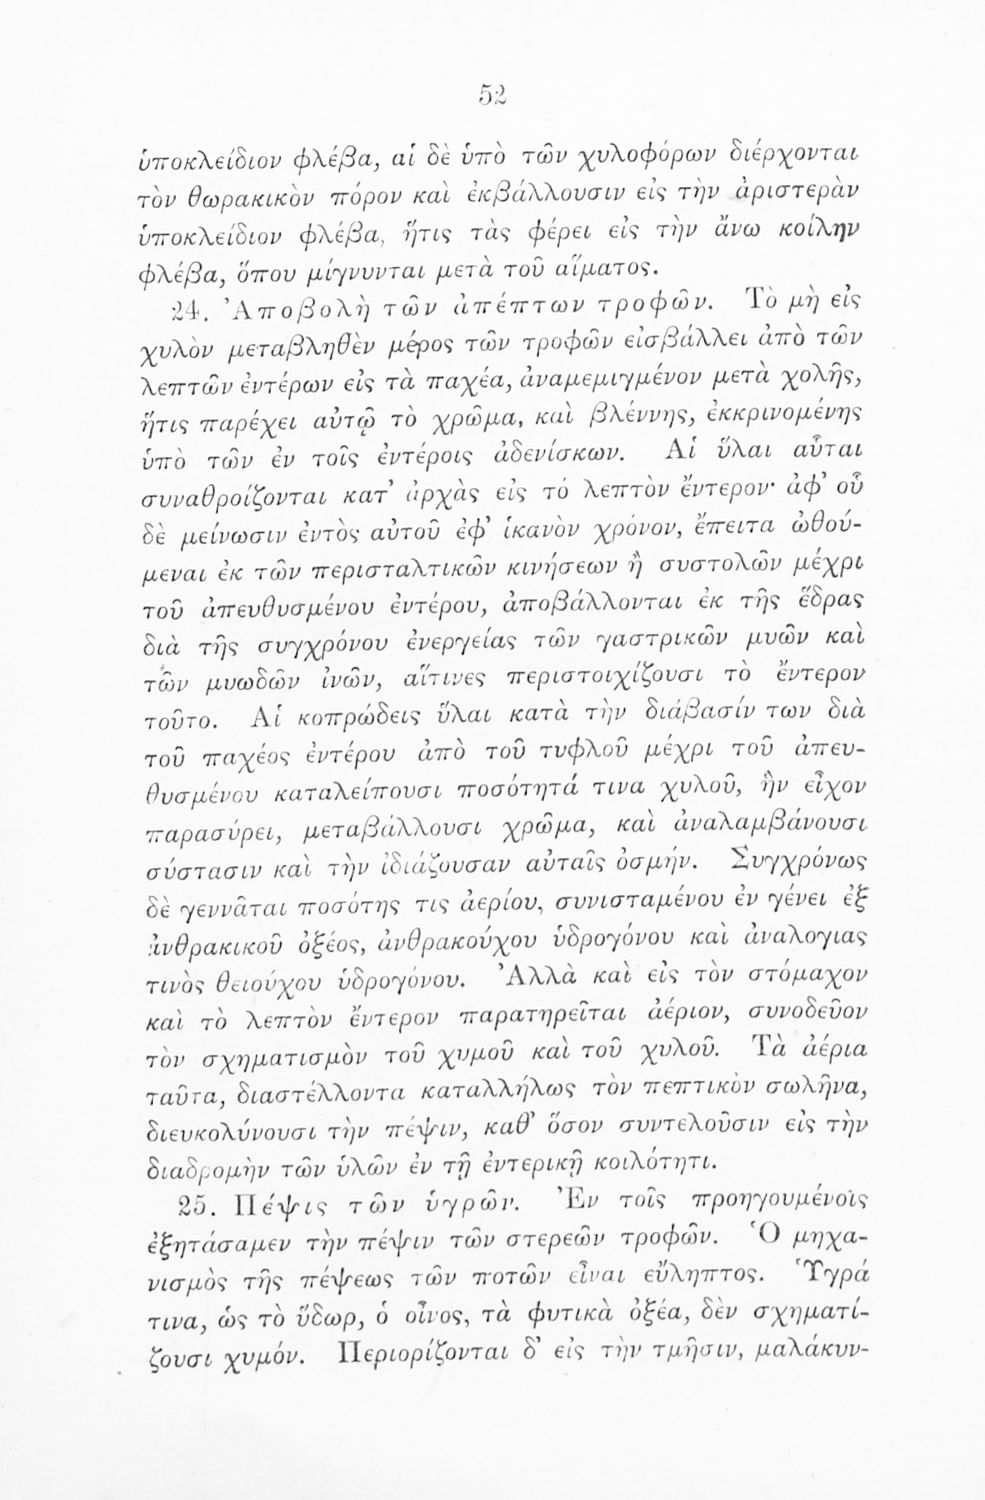 52
ὑποκλείδιον φλέβα, αἱ δὲ ὑπὸ τῶν χυλοφόρων διέρχονται
τὸν θωρακικὸν πόρον καὶ ἐκβάλλουσιν εἰς τὴν ἀριστερὰν
ὑποκλείδιον φλέβα, ἥτις τὰς φέρει εἰς τὴν ἄνω κοίλην
φλέβα, ὅπου μίγνυνται μετὰ τοῦ αἵματος.
24. Ἀποβολὴ τῶν ἀπέπτων τροφῶν. Τὸ μὴ εἰς
χυλὸν μεταβληθὲν μέρος τῶν τροφῶν εἰσβάλλει ἀπὸ τῶν
λεπτῶν ἐντέρων εἰς τὰ παχέα, ἀναμεμιγμένον μετὰ χολῆς,
ἥτις παρέχει αὐτῷ τὸ χρῶμα, καὶ βλέννης, ἐκκρινομένης
ὑπὸ τῶν ἐν τοῖς ἐντέροις ἀδενίσκων. Αἱ ὕλαι αὗται
συναθροίζονται κατ’ ἀρχὰς εἰς τό λεπτὸν ἔντερον· ἀφ’ οὗ
δὲ μείνωσιν ἐντὸς αὐτοῦ ἐφ’ ἱκανὸν χρόνον, ἔπειτα ὠθού-
μεναι ἐκ τῶν περισταλτικῶν κινήσεων ἢ συστολῶν μέχρι
τοῦ ἀπευθυσμένου ἐντέρου, ἀποβάλλονται ἐκ τῆς ἕδρας
διὰ τῆς συγχρόνου ἐνεργείας τῶν γαστρικῶν μυῶν καὶ
τῶν μυωδῶν ἰνῶν, αἵτινες περιστοιχίζουσι τὸ ἔντερον
τοῦτο. Αἱ κοπρώδεις ὕλαι κατὰ τὴν διάβασίν των διὰ
τοῦ παχέος ἐντέρου ἀπὸ τοῦ τυφλοῦ μέχρι τοῦ ἀπευ-
θυσμένου καταλείπουσι ποσότητά τινα χυλοῦ, ἣν εἶχον
παρασύρει, μεταβάλλουσι χρῶμα, καὶ ἀναλαμβάνουσι
σύστασιν καὶ τὴν ἰδιάζουσαν αὐταῖς ὀσμήν. Συγχρόνως
δὲ γεννᾶται ποσότης τις ἀερίου, συνισταμένου ἐν γένει ἐξ
ἀνθρακικοῦ ὀξέος, ἀνθρακούχου ὑδρογόνου καὶ ἀναλογιας
τινὸς θειούχου ὑδρογόνου. Ἀλλὰ καὶ εἰς τὸν στόμαχον
καὶ τὸ λεπτὸν ἔντερον παρατηρεῖται ἀέριον, συνοδεῦον
τὸν σχηματισμὸν τοῦ χυμοῦ καὶ τοῦ χυλοῦ. Τὰ ἀέρια
ταῦτα, διαστέλλοντα καταλλήλως τὸν πεπτικὸν σωλῆνα,
διευκολύνουσι τὴν πέψιν, καθ’ ὅσον συντελοῦσιν εἰς τὴν
διαδρομὴν τῶν ὑλῶν ἐν τῇ ἐντερικῇ κοιλότητι.
25. Πέψις τῶν ὑγρῶν. Ἐν τοῖς προηγουμένοις
ἐξητάσαμεν τὴν πέψιν τῶν στερεῶν τροφῶν. Ὁ μηχα-
νισμὸς τῆς πέψεως τῶν ποτῶν εἶναι εὔληπτος. Ὑγρά
τινα, ὡς τὸ ὕδωρ, ὁ οἶνος, τὰ φυτικὰ ὀξέα, δὲν σχηματί-
ζουσι χυμόν. Περιορίζονται δ’ εἰς τὴν τμῆσιν, μαλάκυν-